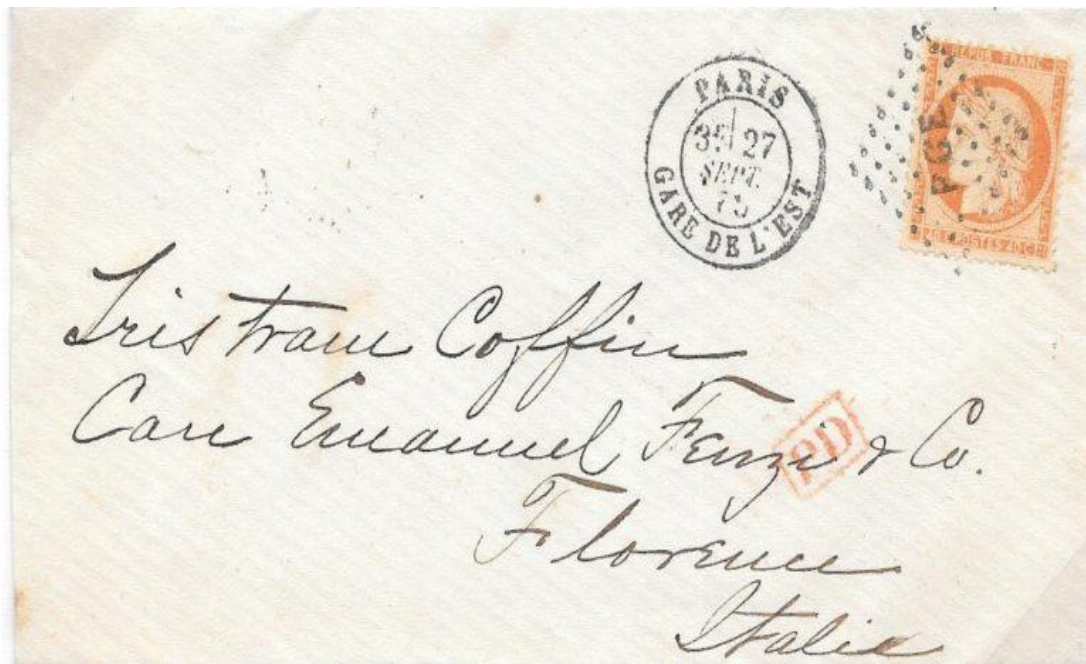 PARIS
3E 27
SEPT.
75
GARE DE L'EST
REPUB FRANC
PGE
40 C POSTES 40 C
Tristram Coffin
Care Emanuel Fenzi & Co.
PD
Florence
Italie